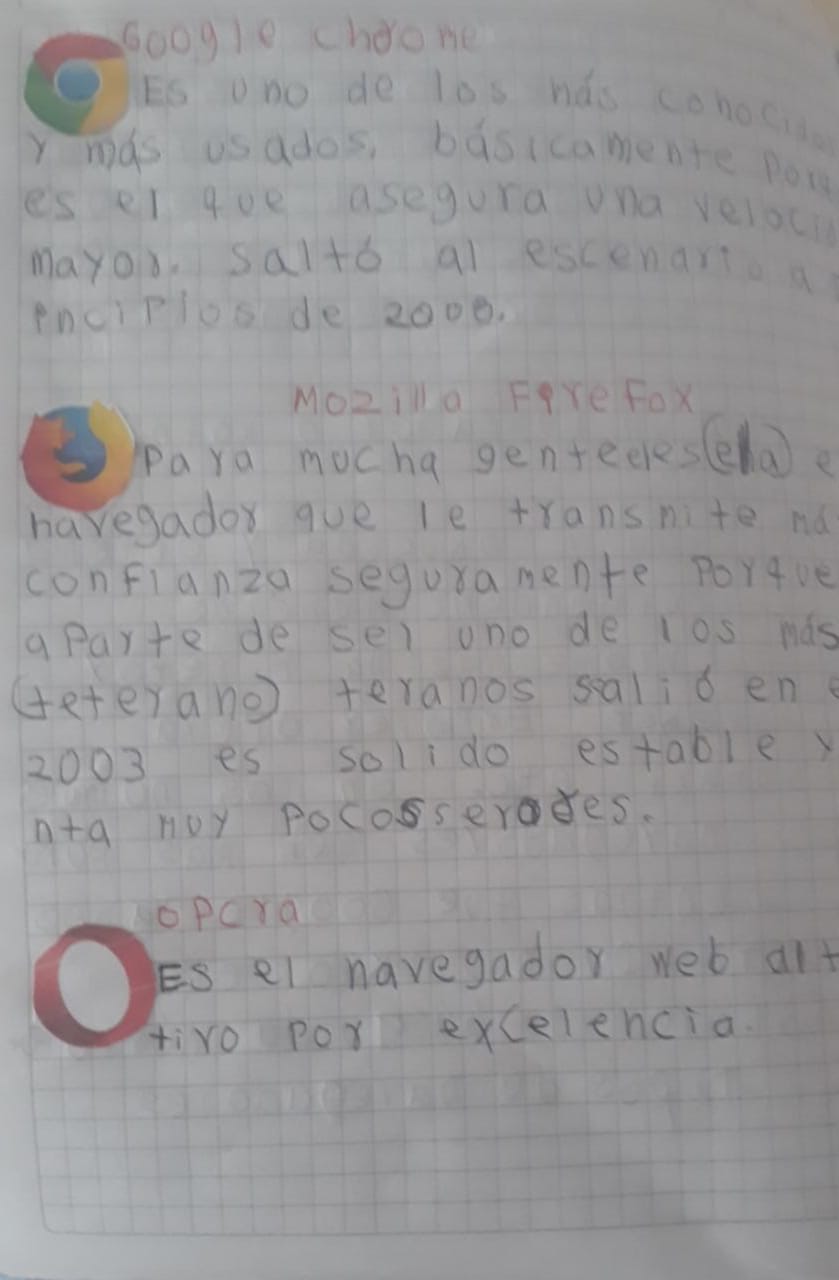 Google chrome
Es uno de los más conocidos
y más usados, básicamente porq
es el que asegura una veloci
mayor. saltó al escenario a
enciplos de 2000.
Mozilla Firefox
Para mucha gente es (ela) e
navegador que le transmite má
confianza seguramente porque
aparte de ser uno de los más
(teterano) teranos salió en e
2003 es solido estable y
nta muy pocos
opera
Es el navegador web alt
tivo por excelencia.